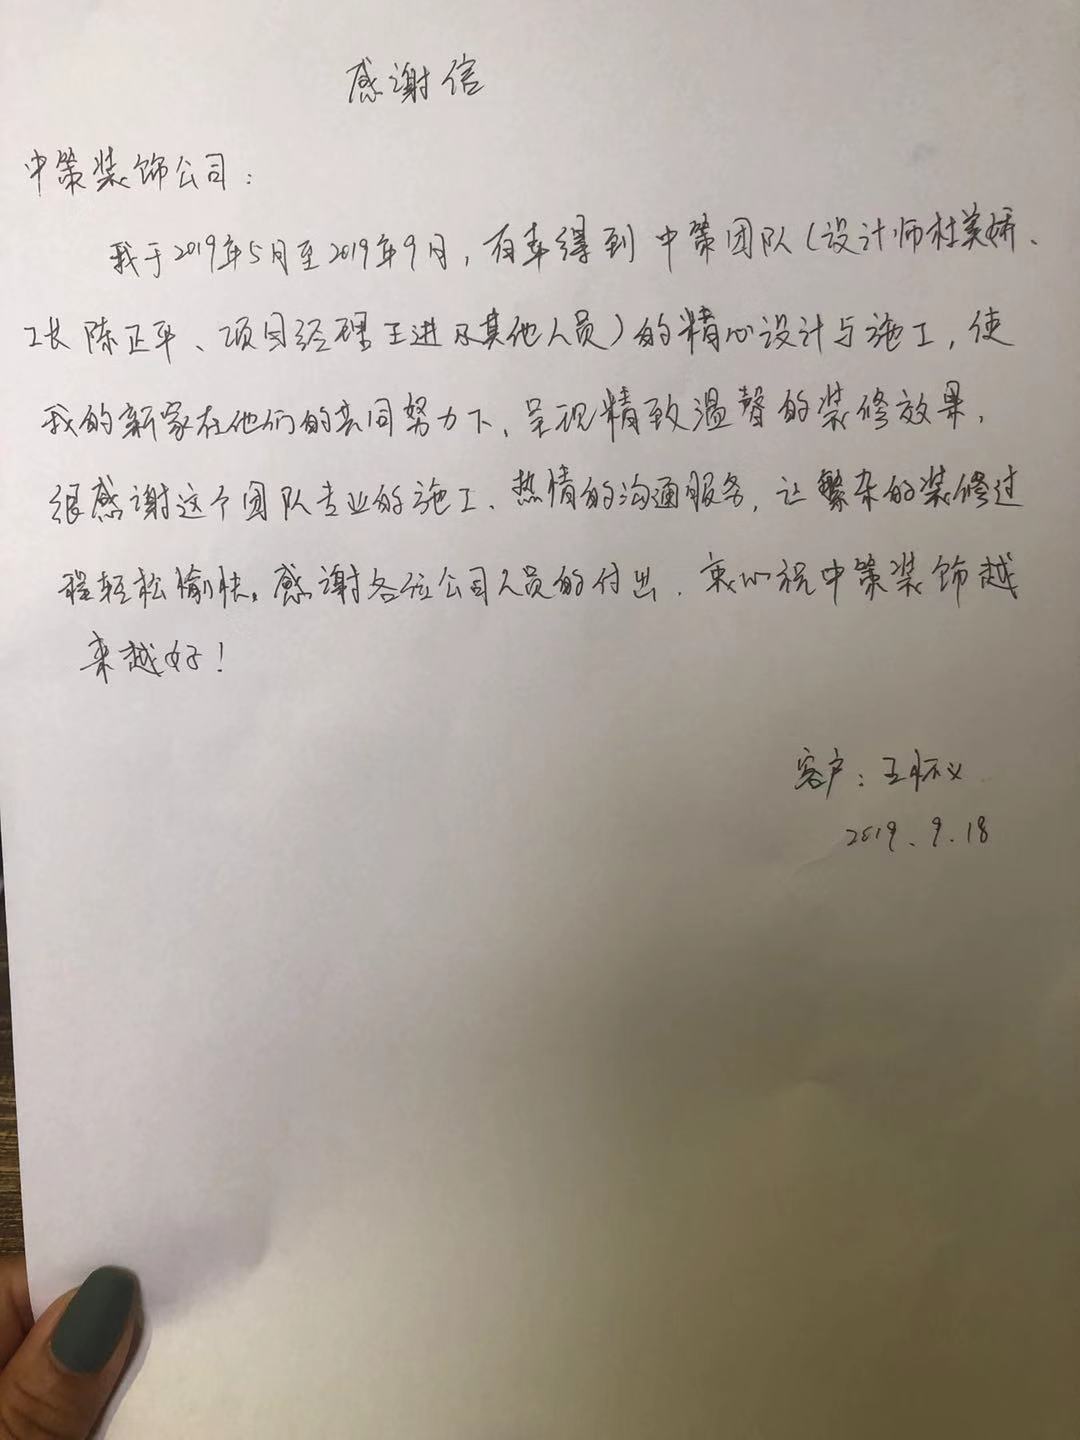 感谢信
中策装饰公司：
我于2019年5月至2019年9月，有幸得到中策团队（设计师杜美娇、
工长陈正平、项目经理王进及其他人员）的精心设计与施工，使
我的新家在他们的共同努力下，呈现精致温馨的装修效果，
很感谢这个团队专业的施工、热情的沟通服务，让繁杂的装修过
程轻松愉快。感谢各位公司人员的付出，衷心祝中策装饰越
来越好！
客户：王怀义
2019.9.18